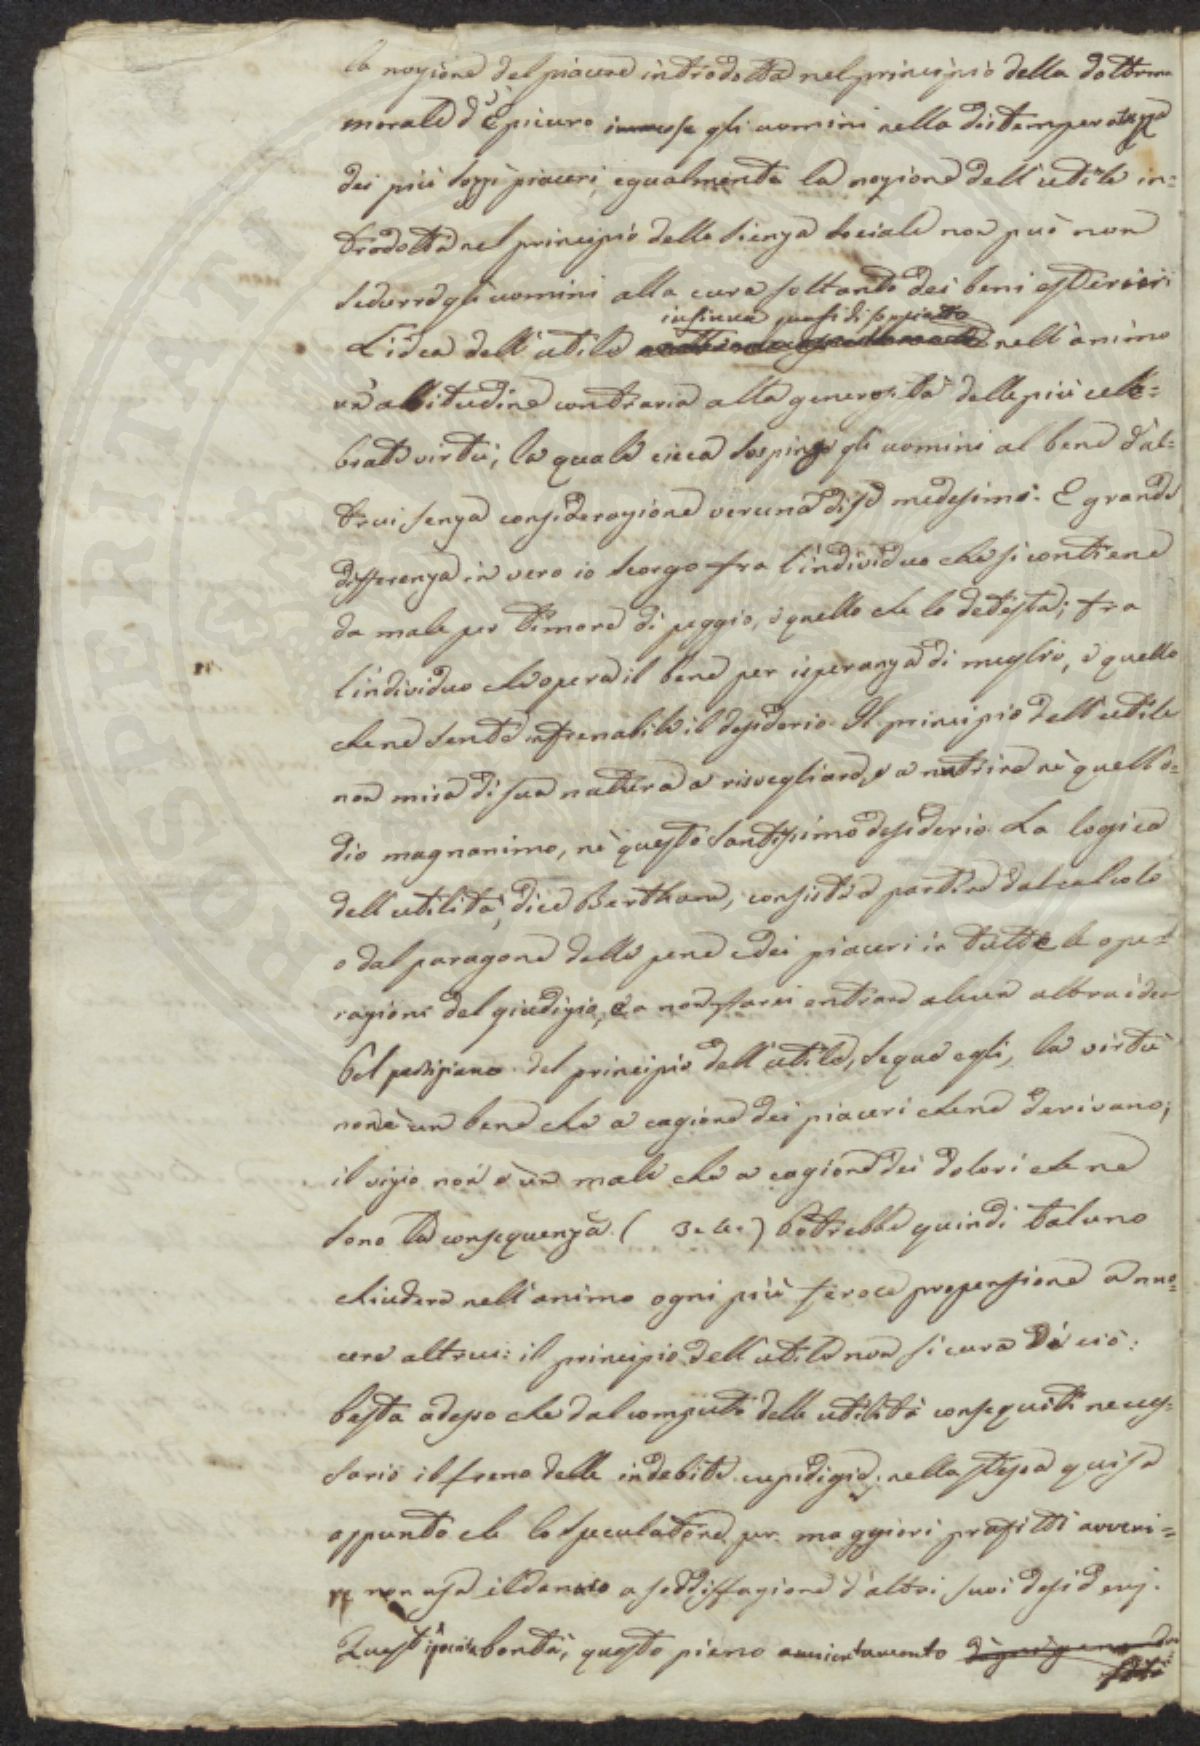 la nozione del piacere introdotta nel principio della dottrina
morale d'Epicuro immerse gli uomini nella distemperatezza
dei più sozzi piaceri, egualmente la nozione dell'utile in=
trodotta nel principio della scienza sociale non può non
sedurre gli uomini alla cura soltanto dei beni esteriori.
insinua quasi di soppiatto
L'idea dell'utile nell'animo
un'abitudine contraria alla generosità delle più cele=
brate virtù, la quale cieca sospinge gli uomini al bene d'al=
trui senza considerazione veruna di se medesimi. E grande
differenza in vero io scorgo fra l'individuo che si contiene
da male per timore di peggio, e quello che lo detesta; fra
l'individuo che opera il bene per isperanza di meglio, e quello
che ne sente infrenabile il desiderio. Il principio dell'utile
non mira di sua natura a risvegliare, e a nutrire nè quell'o=
dio magnanimo, nè questo santissimo desiderio. La logica
dell'utilità, dice Bentham, consiste a partire dal calcolo
o dal paragone delle pene e dei piaceri in tutte le ope=
razioni del giudizio, e a non farci entrare alcun altra idea
Pel partigiano del principio dell'utile, segue egli, la virtù
non è un bene che a cagione dei piaceri che ne derivano;
il vizio non è un male che a cagione dei dolori che ne
sono la conseguenza. ( ) Potrebbe quindi taluno
chiudere nell'animo ogni più feroce propensione a nuo=
cere altrui: il principio dell'utile non si cura di ciò:
basta adesso che dal computo delle utilità conseguiti neces=
sario il freno delle indebite cupidigie, nella stessa guisa
appunto che lo speculatore per maggiori profitti avveni=
re non usa il danaro a soddisfazione d'altri suoi desiderj.
Quest' bontà, questo pieno annientamento